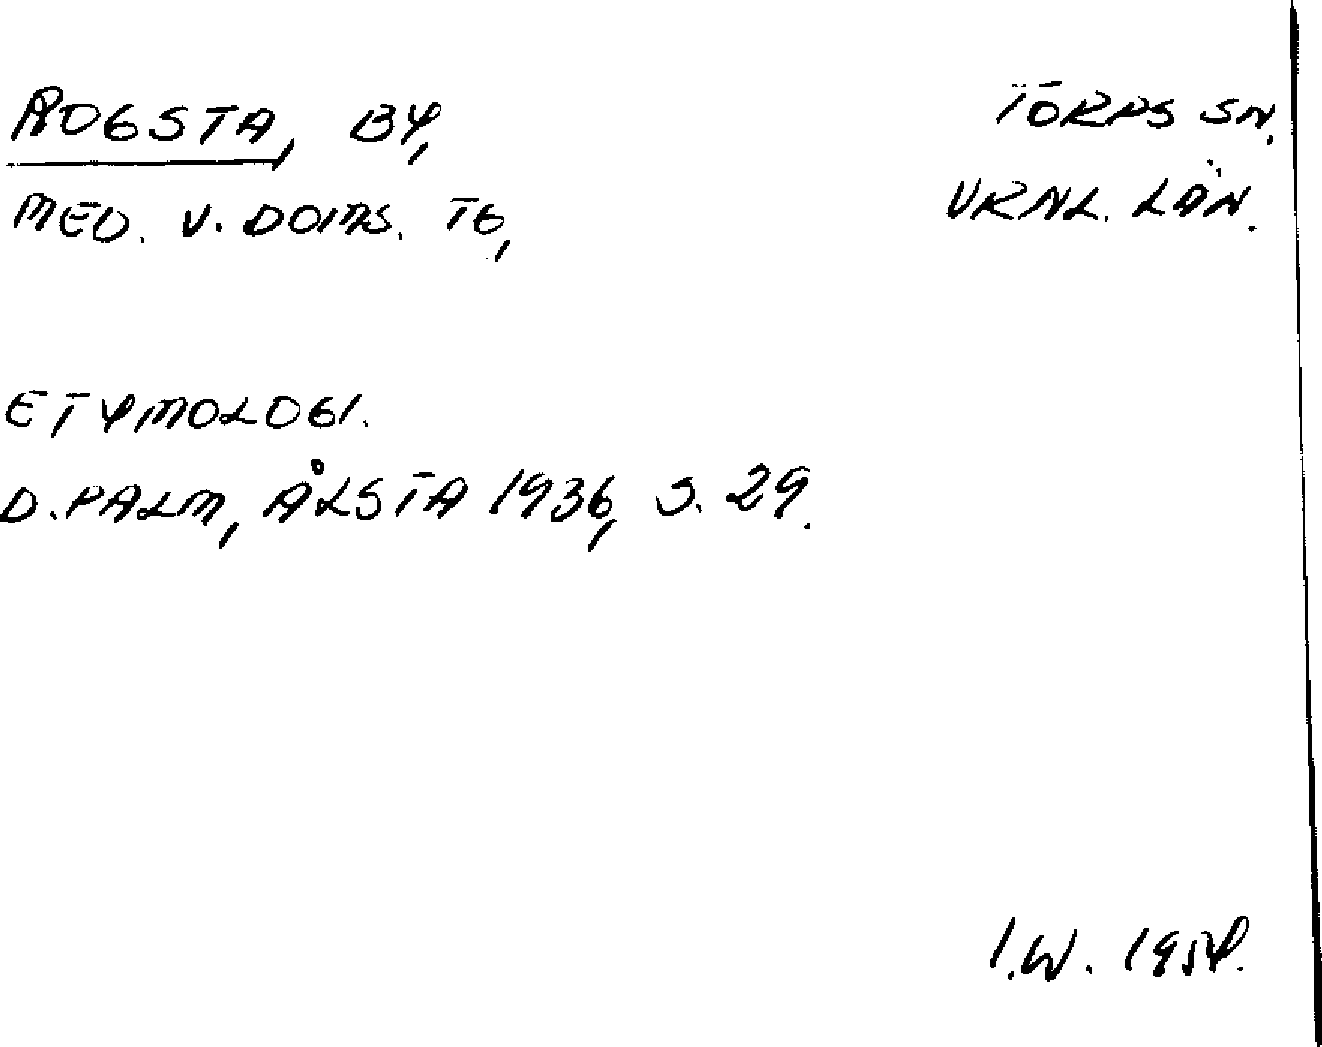 ROGSTA, BY,
TORPS SN.
MED. V. DOMS. TG,
VRNL. LÄN.
ETYMOLOGI.
D. PALM, ÅLSTA 1936, S. 29.
I.W. 1954.